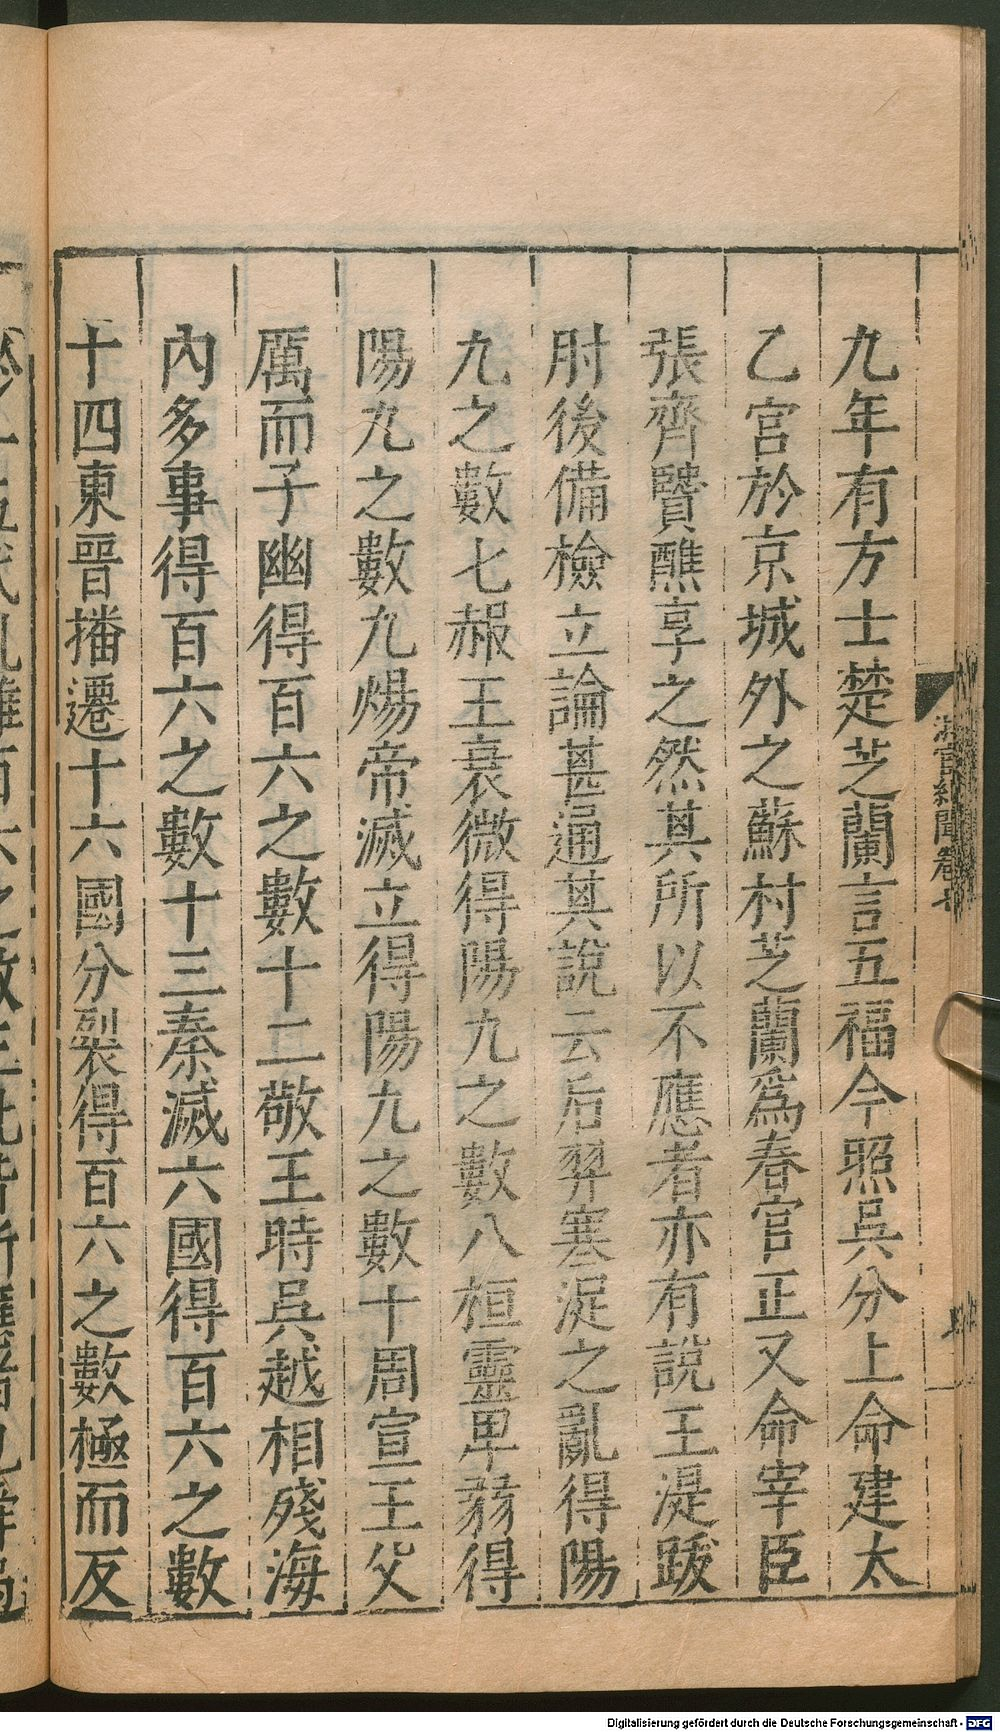 九年有方士楚芝蘭言五福今照吳分上命建太
乙宮於京城外之蘇村芝蘭爲春官正又命宰臣
張齊賢醮享之然其所以不應者亦有說王湜跋
肘後備檢立論甚通其說云后羿寒浞之亂得陽
九之數七赧王衰微得陽九之數八桓靈卑弱得
陽九之數九煬帝滅立得陽九之數十周宣王父
厲而子幽得百六之數十二敬王時吳越相殘海
內多事得百六之數十三秦滅六國得百六之數
十四東晉播遷十六國分裂得百六之數極而反
Digitalisierung gefördert durch die Deutsche Forschungsgemeinschaft - DFG